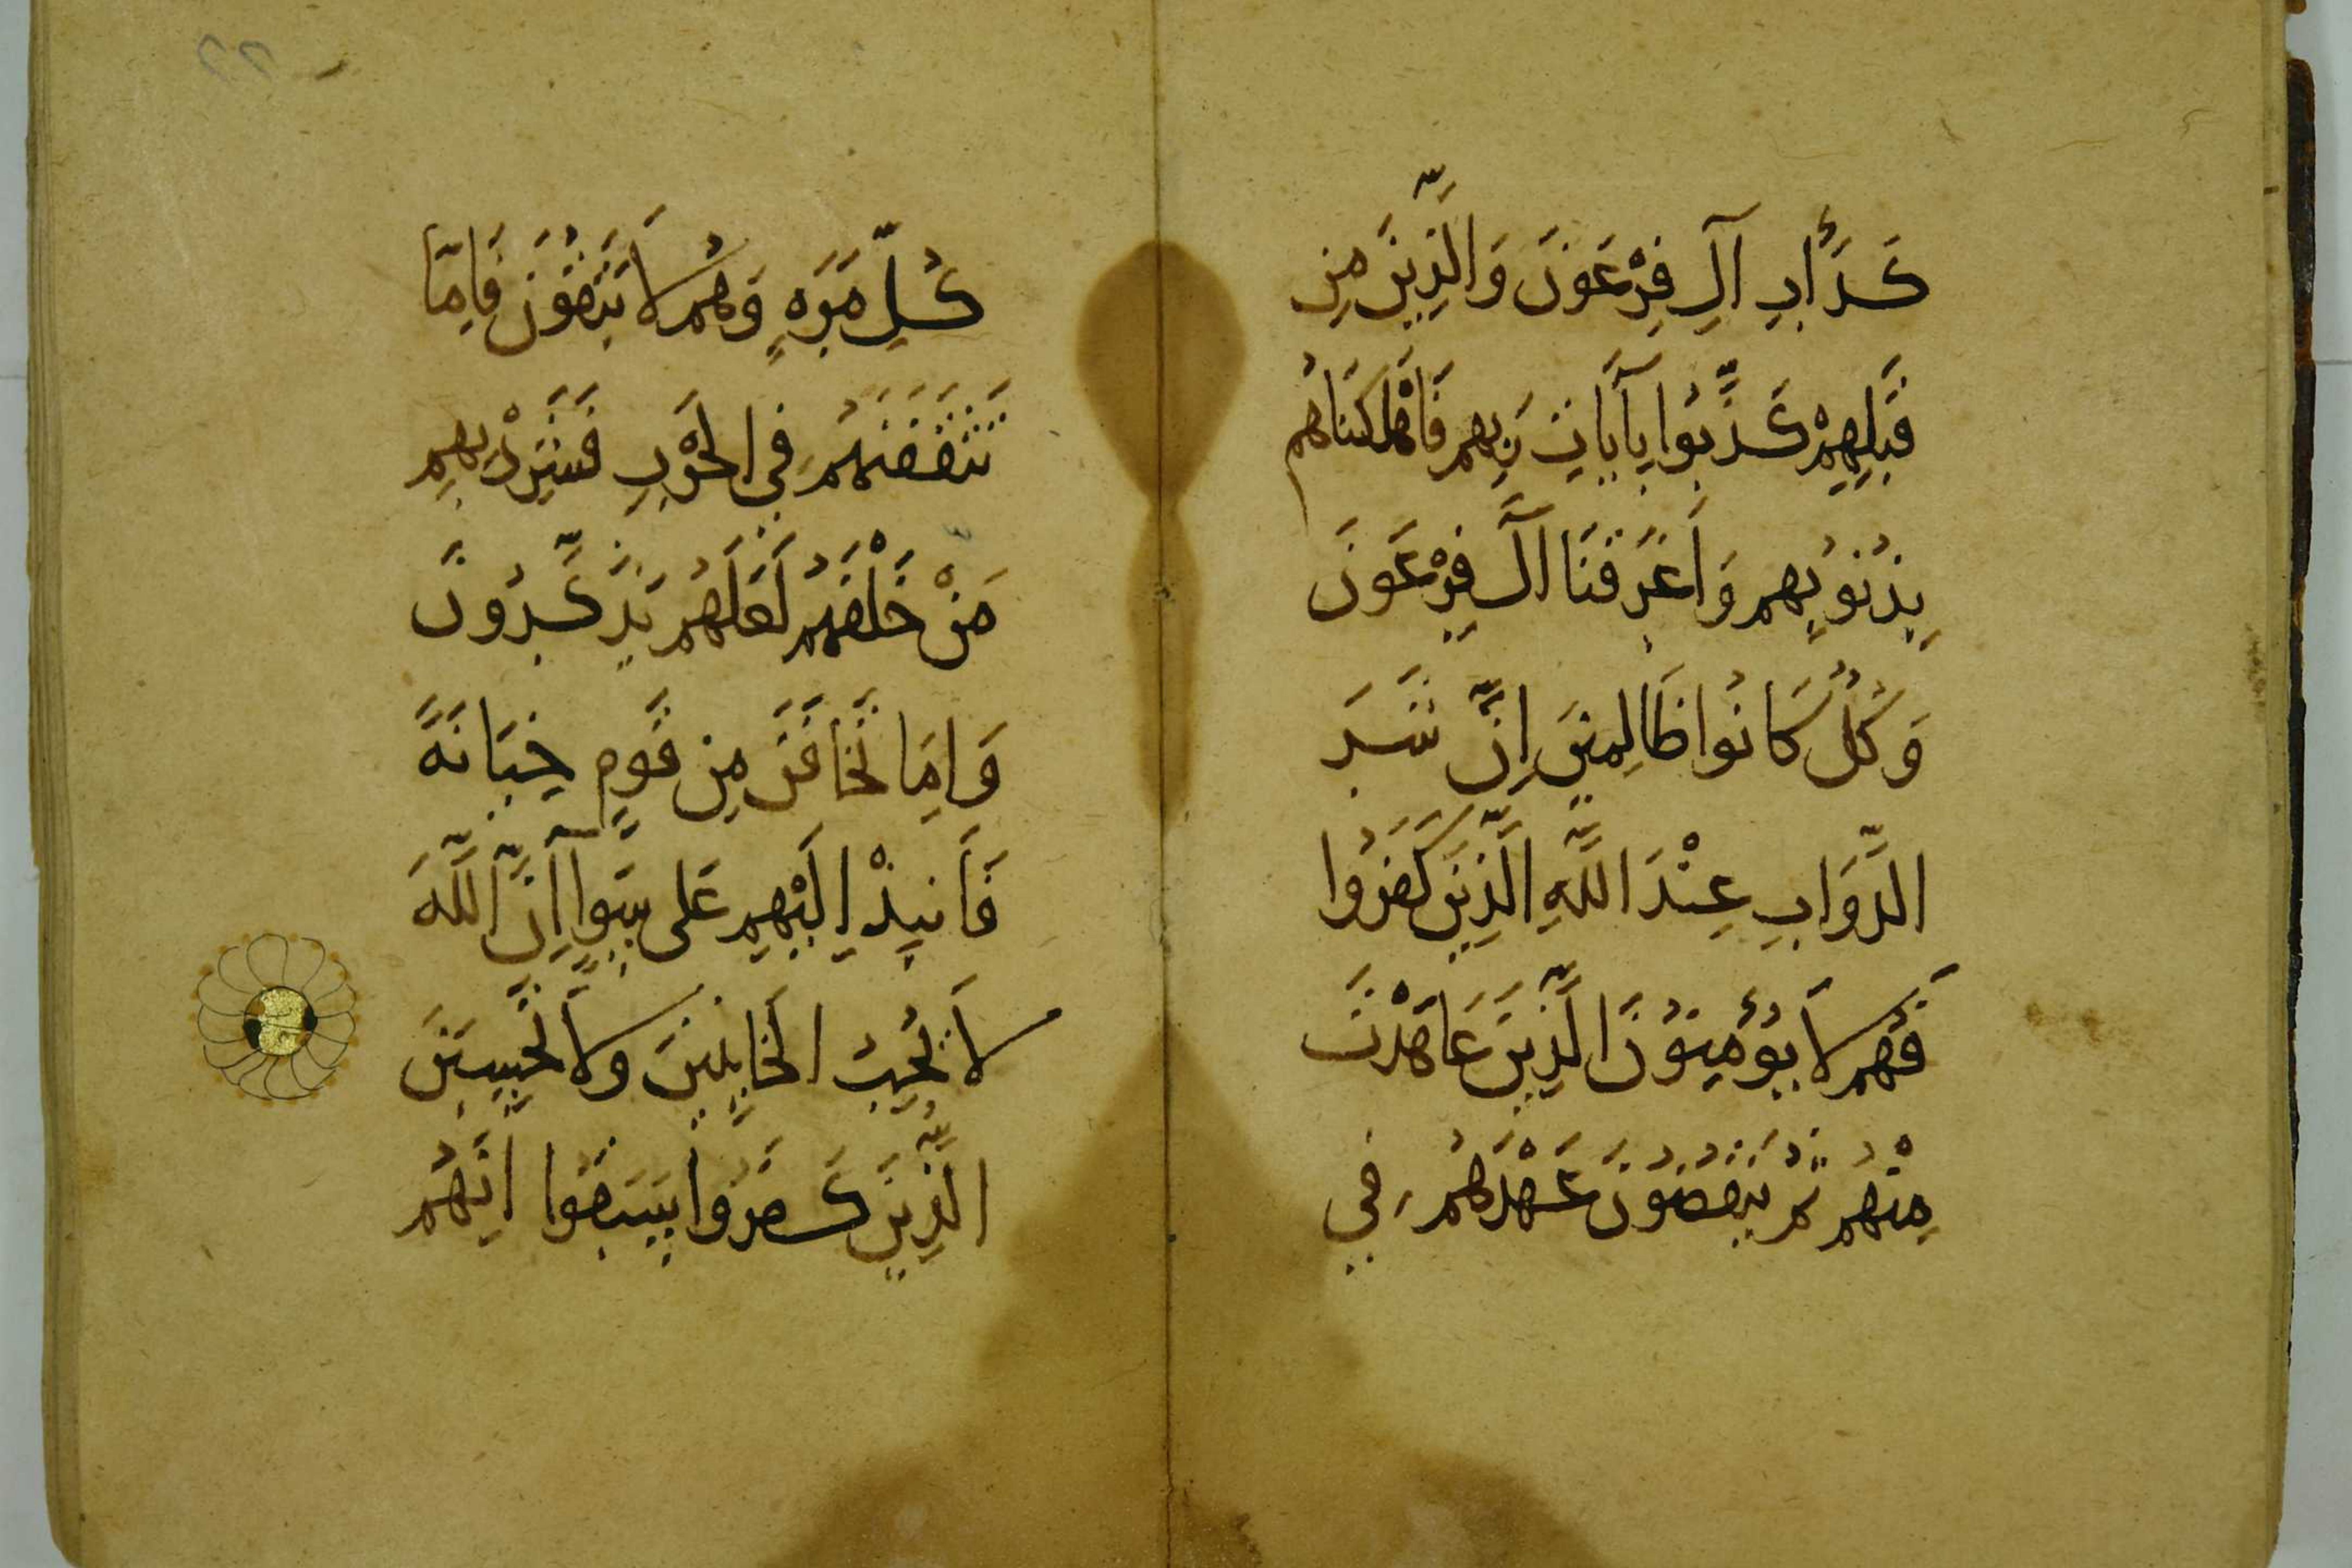 كَدَأْبِ آلِ فِرْعَوْنَ وَالَّذِينَ مِن
قَبْلِهِمْ كَذَّبُوا بِآيَاتِ رَبِّهِمْ فَأَهْلَكْنَاهُم
بِذُنُوبِهِم وَأَغْرَقْنَا آلَ فِرْعَوْنَ
وَكُلٌّ كَانُوا ظَالِمِينَ إِنَّ شَرَّ
الدَّوَابِّ عِنْدَ اللَّهِ الَّذِينَ كَفَرُوا
فَهُم لَا يُؤْمِنُونَ الَّذِينَ عَاهَدْتَ
مِنْهُم ثُمَّ يَنْقُضُونَ عَهْدَهُم فِي
كُلِّ مَرَّةٍ وَهُم لَا يَتَّقُونَ فَإِمَّا
تَثْقَفَنَّهُم فِي الْحَرْبِ فَشَرِّدْ بِهِم
مَنْ خَلْفَهُم لَعَلَّهُم يَذَّكَّرُونَ
وَإِمَّا تَخَافَنَّ مِن قَوْمٍ خِيَانَةً
فَانْبِذْ إِلَيْهِم عَلَى سَوَآءٍ إِنَّ اللَّهَ
لَا يُحِبُّ الْخَايِنِينَ وَلَا تَحْسِبَنَّ
الَّذِينَ كَفَرُوا سَبَقُوا إِنَّهُم
٢٢